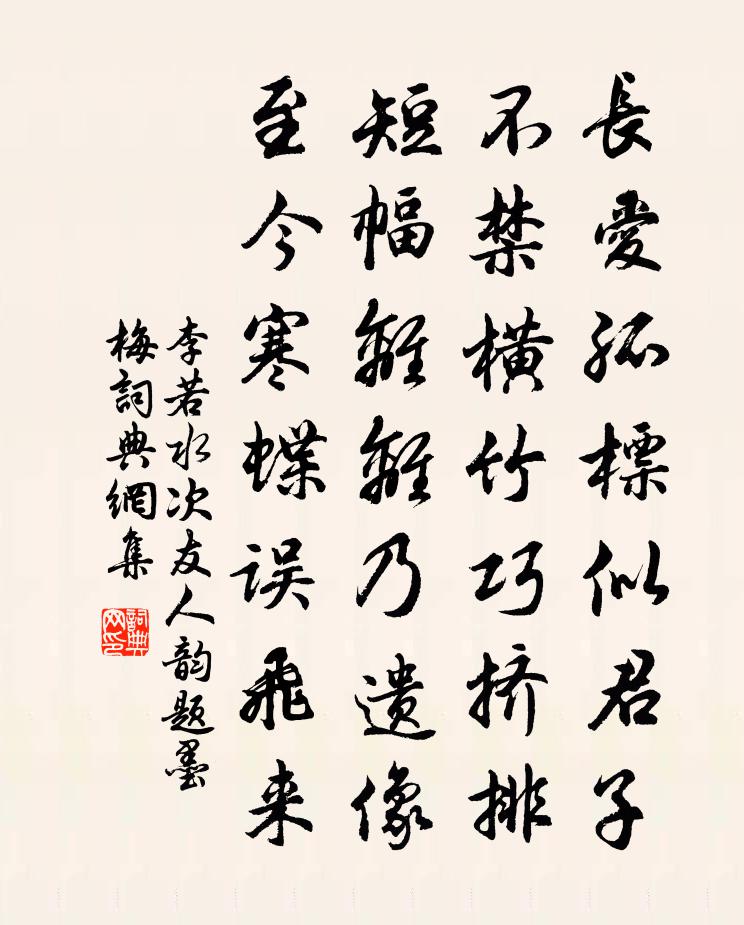 長愛孤標似君子
不禁橫竹巧挤排
短幅離離乃遺像
至今寒蝶误飛来
李若水次友人韵题墨
梅詞典網集
詞典网印